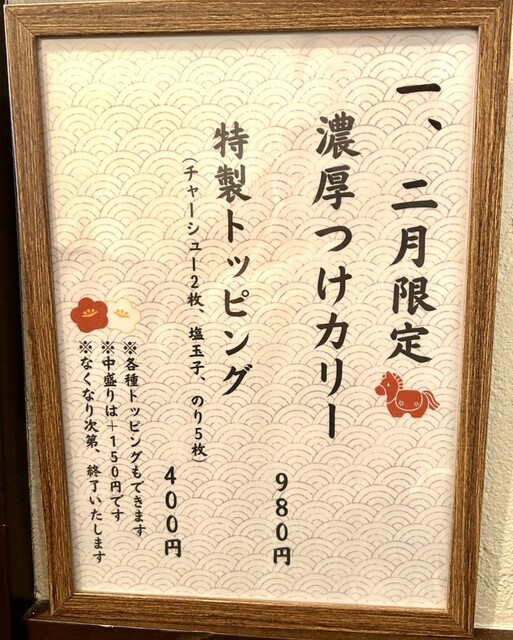 一、二月限定
濃厚つけカリー
980円
特製トッピング
(チャーシュー2枚、塩玉子、のり5枚)
400円
※各種トッピングもできます
※中盛りは+150円です
※なくなり次第、終了いたします